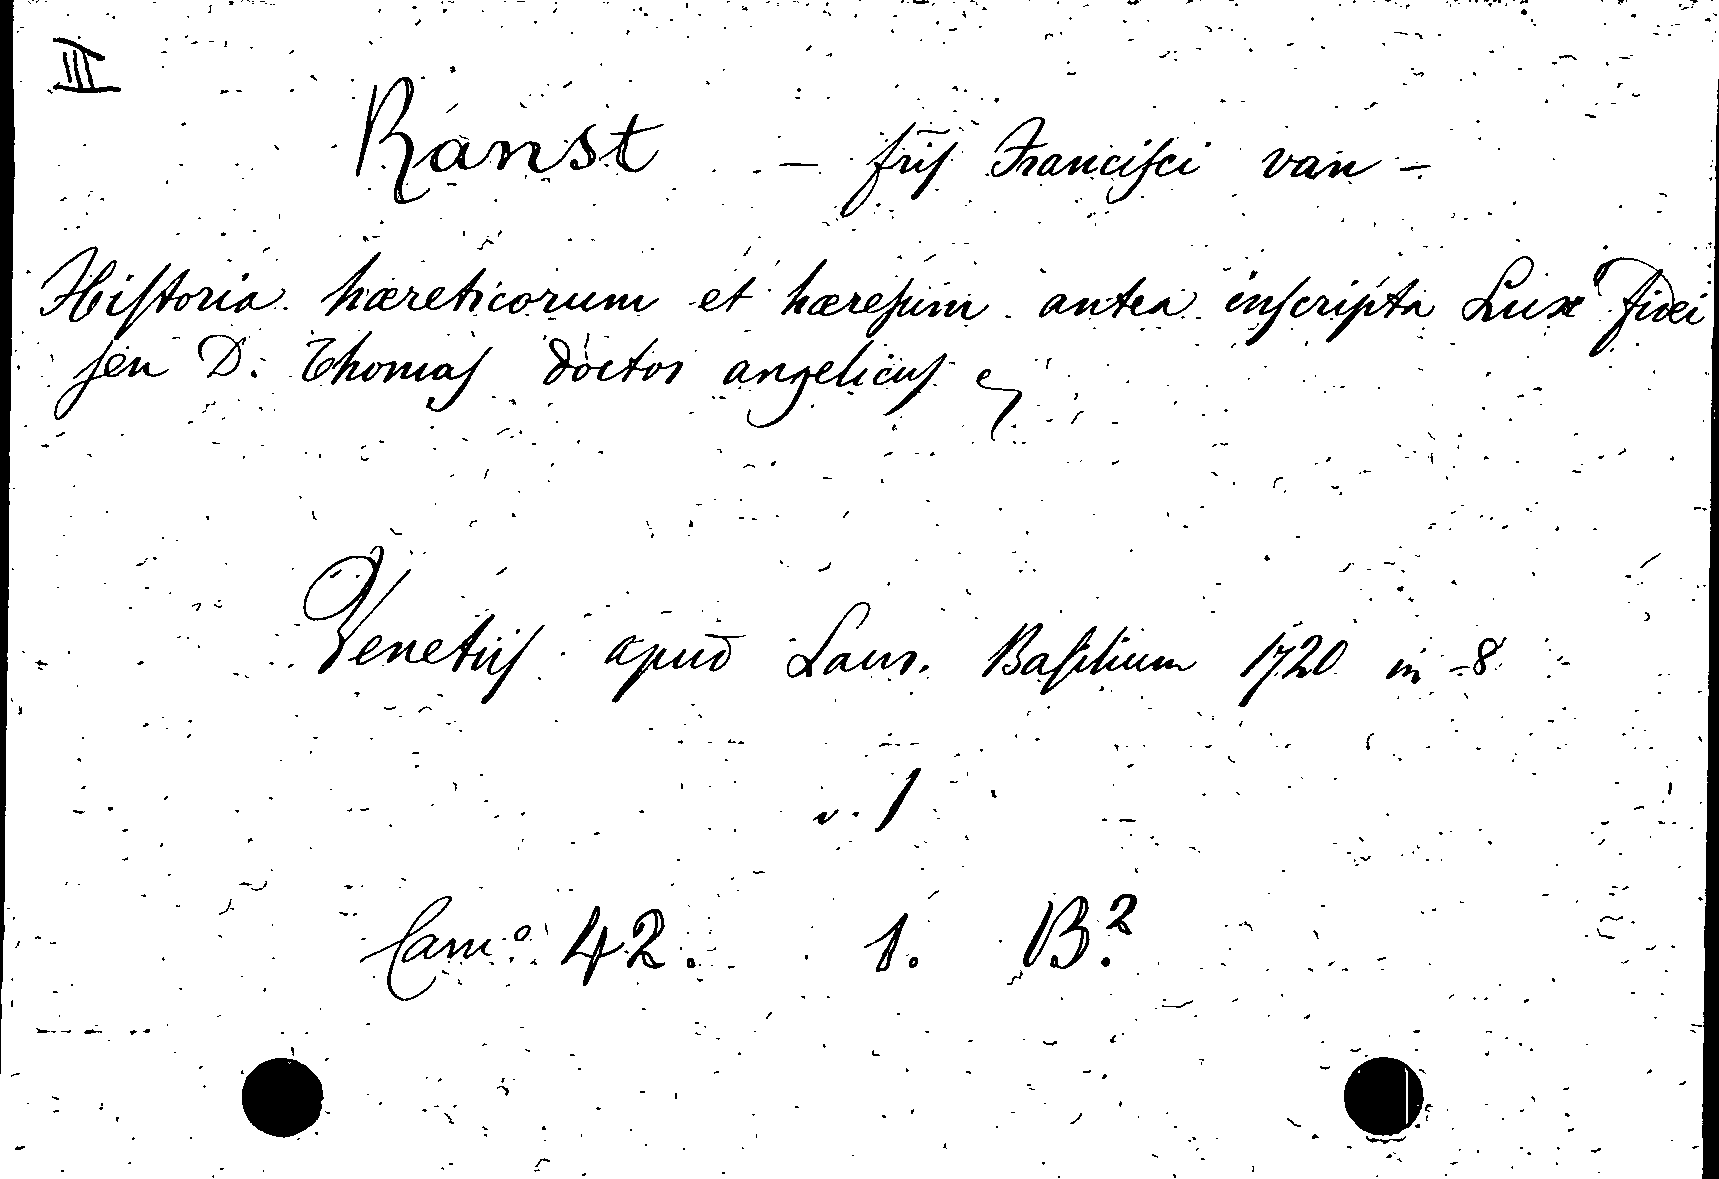 III
Ranst - fr̃is Francisci van -
Historia hæreticorum et hæresum antea inscripta Lux fidei
seu D. Thomas doctor angelicus
Venetiis apud Laur. Basilium 1720 in-8
v. 1
Cam.º 42. 1. B.²